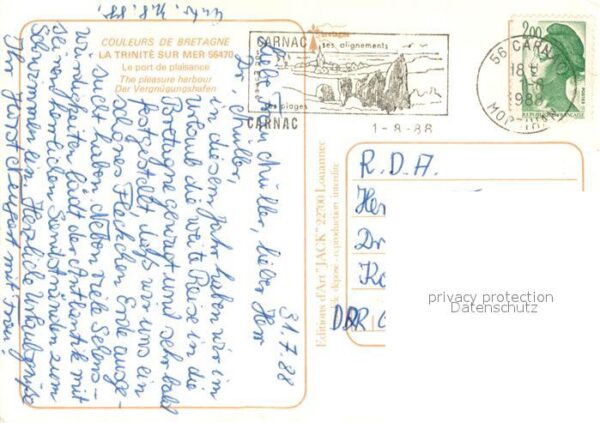 COULEURS DE BRETAGNE
LA TRINITÉ SUR MER 56470
Le port de plaisance
The pleasure harbour
Der Vergnügungshafen
31.7.88
Liebe Frau Müller, lieber Herr
Dr. Müller,
in diesem Jahr haben wir im
Urlaub die weite Reise in die
Bretagne gewagt und sehr bald
festgestellt, daß wir uns ein
schönes Fleckchen Erde ausge-
sucht haben. Neben viele Sehens-
würdigkeiten lädt der Atlantik mit
seinen herrlichen Sandstränden zum
Schwimmen ein. Herzliche Urlaubsgrüße
Ihr Horst mit Frau!
CARNAC
ses alignements
ses plages
CARNAC
1-8-88
56 CARNAC
18 H
1-8
1988
MORBIHAN
2,00
Editions d'Art "JACK" 22700 Louannec
Modèle déposé - reproduction interdite
R.D.A.
Her
Dr
K
DDR
privacy protection
Datenschutz